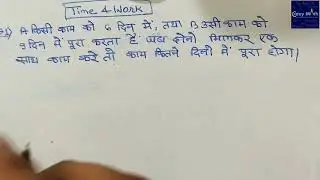 Time & Work
Q1) A किसी काम को 6 दिन में, तथा B उसी काम को
9 दिन में पूरा करता है यदि दोनों मिलकर एक
साथ काम करे तो काम कितने दिनों में पूरा होगा।